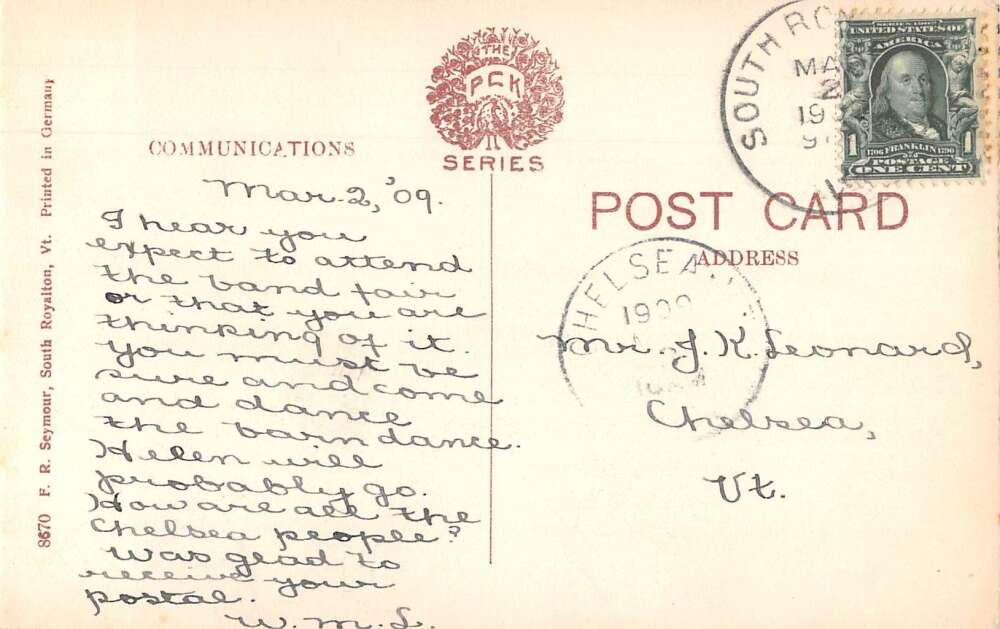 THE
PCK
SERIES
COMMUNICATIONS
POST CARD
ADDRESS
8670 F. R. Seymour, South Royalton, Vt. Printed in Germany
SOUTH RO
MA
2
190
9
SERIES 1902
UNITED STATES OF
AMERICA
1706 FRANKLIN 1790
1 POSTAGE 1
ONE CENT
CHELSEA
1909
Mar. 2, '09.
I hear you
expect to attend
the band fair
or that you are
thinking of it.
You must be
sure and come
and dance
the barn dance.
Helen will
probably go.
How are all the
Chelsea people?
Was glad to
receive your
postal.
W. M. L.
Mr. J. K. Leonard,
Chelsea,
Vt.